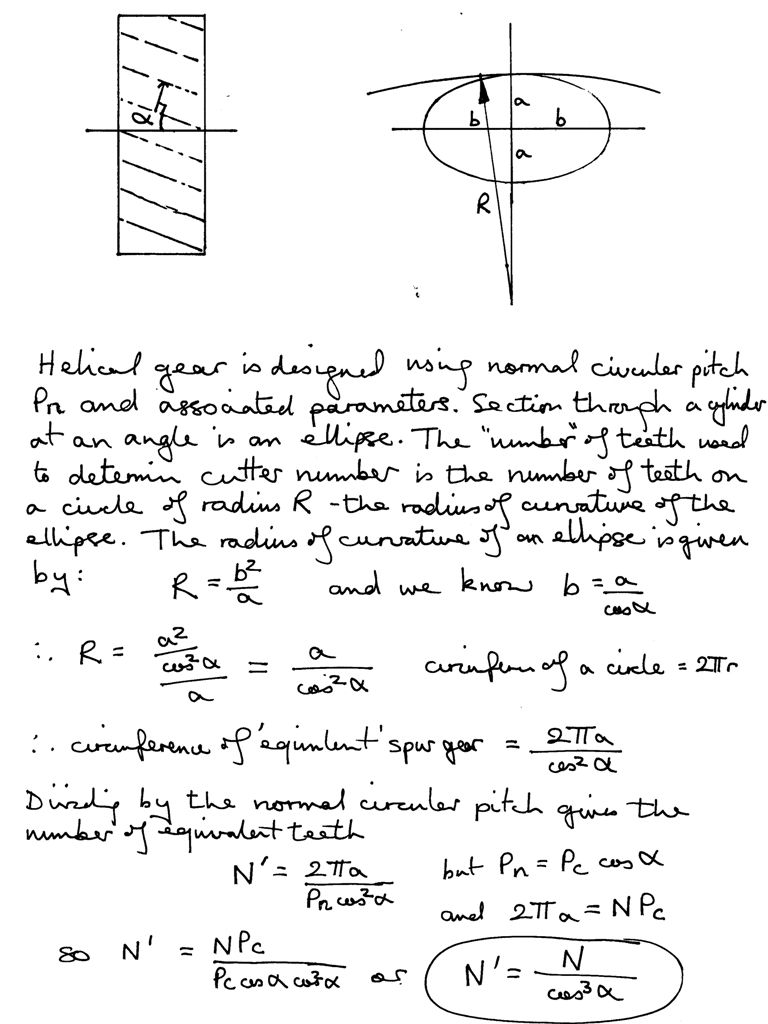 α
a
b
b
a
R
Helical gear is designed using normal circular pitch
Pn and associated parameters. Section through a cylinder
at an angle is an ellipse. The "number" of teeth used
to determin cutter number is the number of teeth on
a circle of radius R - the radius of curvature of the
ellipse. The radius of curvature of an ellipse is given
by: R = b²/a and we know b = a/cosα
∴ R = (a²/cos²α)/a = a/cos²α circumferen of a circle = 2πr
∴ circumference of 'equivalent' spur gear = 2πa/cos²α
Dividing by the normal circular pitch gives the
number of equivalent teeth
N' = 2πa/Pn cos²α but Pn = Pc cos α
and 2πa = NPc
so N' = NPc/Pc cos α cos²α or N' = N/cos³α